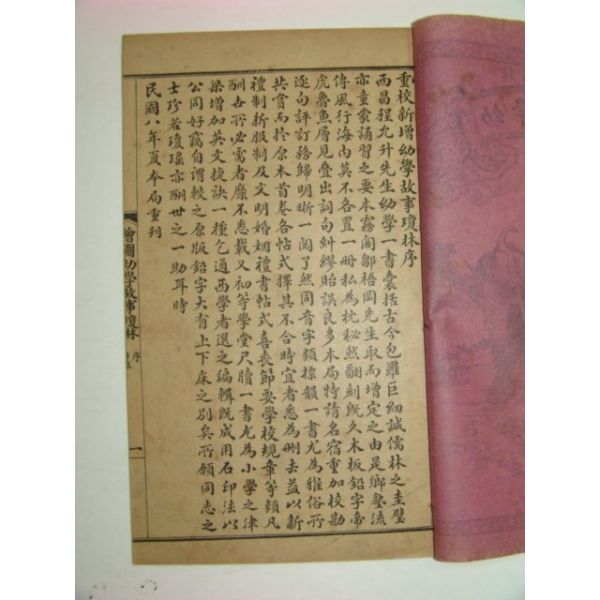 重校新增幼學故事瓊林序
西昌程允升先生幼學一書囊括古今包羅巨細誠儒林之圭璧
亦童蒙誦習之要本霧閣鄒梧岡先生取而增定之由是鄉塾流
傳風行海內莫不各置一冊私為枕秘然翻刻既久木板鉛字帝
虎魯魚層見叠出詞句糾繆貽誤良多本局特請名宿重加校勘
逐句評訂務歸明晰一閱了然同音字類標韻一書尤為雅俗所
共賞而於原本首卷各帖式擇其不合時宜者悉為刪去益以新
禮制新服制及文明婚姻禮書帖式喜喪節要學校規章等類凡
酬世所必需者靡不悉載又初等學堂尺牘一書尤為小學之津
梁增加英文捷訣一種乞通西學者選之編輯既成用石印法以
公同好竊自謂較之原版鉛字大有上下床之別矣所願同志之
士珍若瓊瑤亦酬世之一助耳時
民國八年夏本局重刊
繪圖幼學故事瓊林 序
一
幼